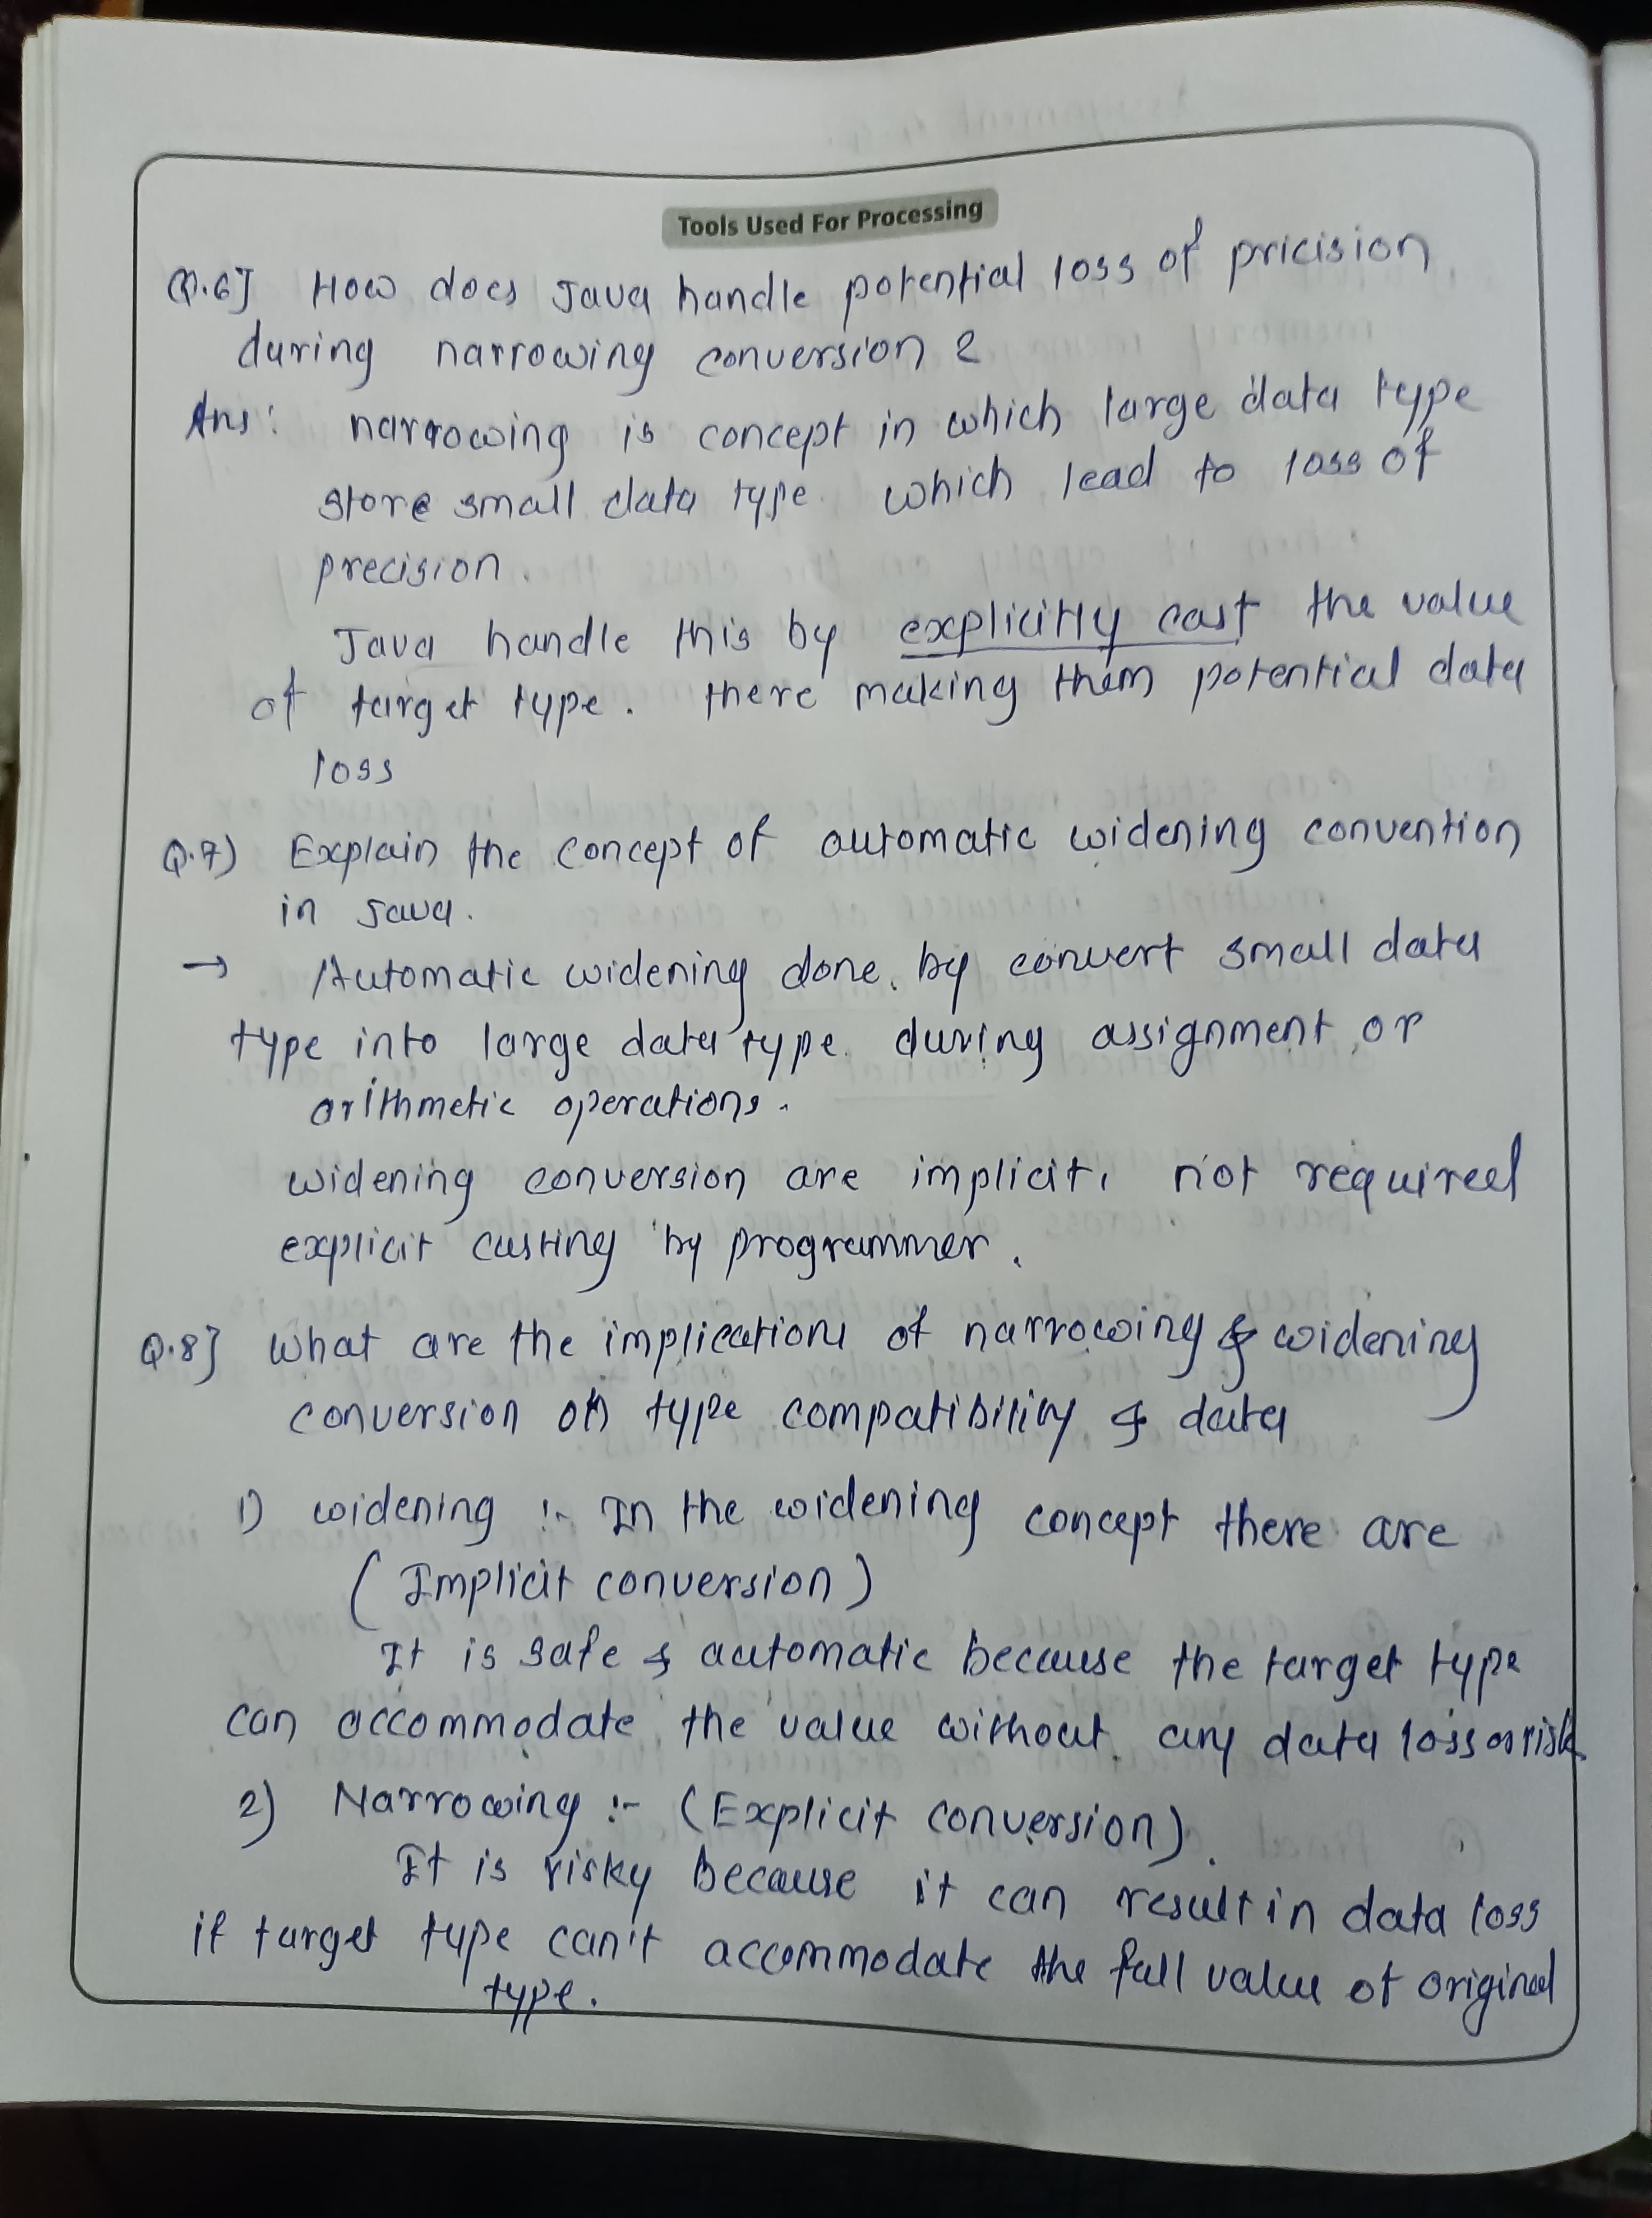 Tools Used For Processing
Q.6] How does Java handle potential loss of pricision
during narrowing conversion ?
Ans: narrowing is concept in which large data type
store small data type which lead to loss of
precision.
Java handle this by explicitly cast the value
of target type. there making them potential data
loss
Q.7) Explain the concept of automatic widening convention
in Java.
→ Automatic widening done by convert small data
type into large data type during assignment or
arithmetic operations.
widening conversion are implicit, not required
explicit casting by programmer.
Q.8] What are the implications of narrowing & widening
conversion on type compatibility & data
1) widening :- In the widening concept there are
(Implicit conversion)
It is safe & automatic because the target type
can accommodate the value without any data loss or risk
2) Narrowing :- (Explicit conversion).
It is risky because it can result in data loss
if target type can't accommodate the full value of original
type.